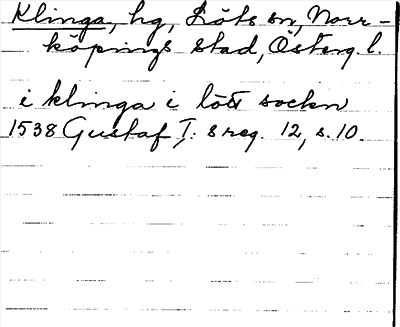 Klinga, hg, Löts sn, Norr-
köpings stad, Österg. l.
i klinga i lött sockn
1538 Gustaf I: s reg. 12, s. 10.